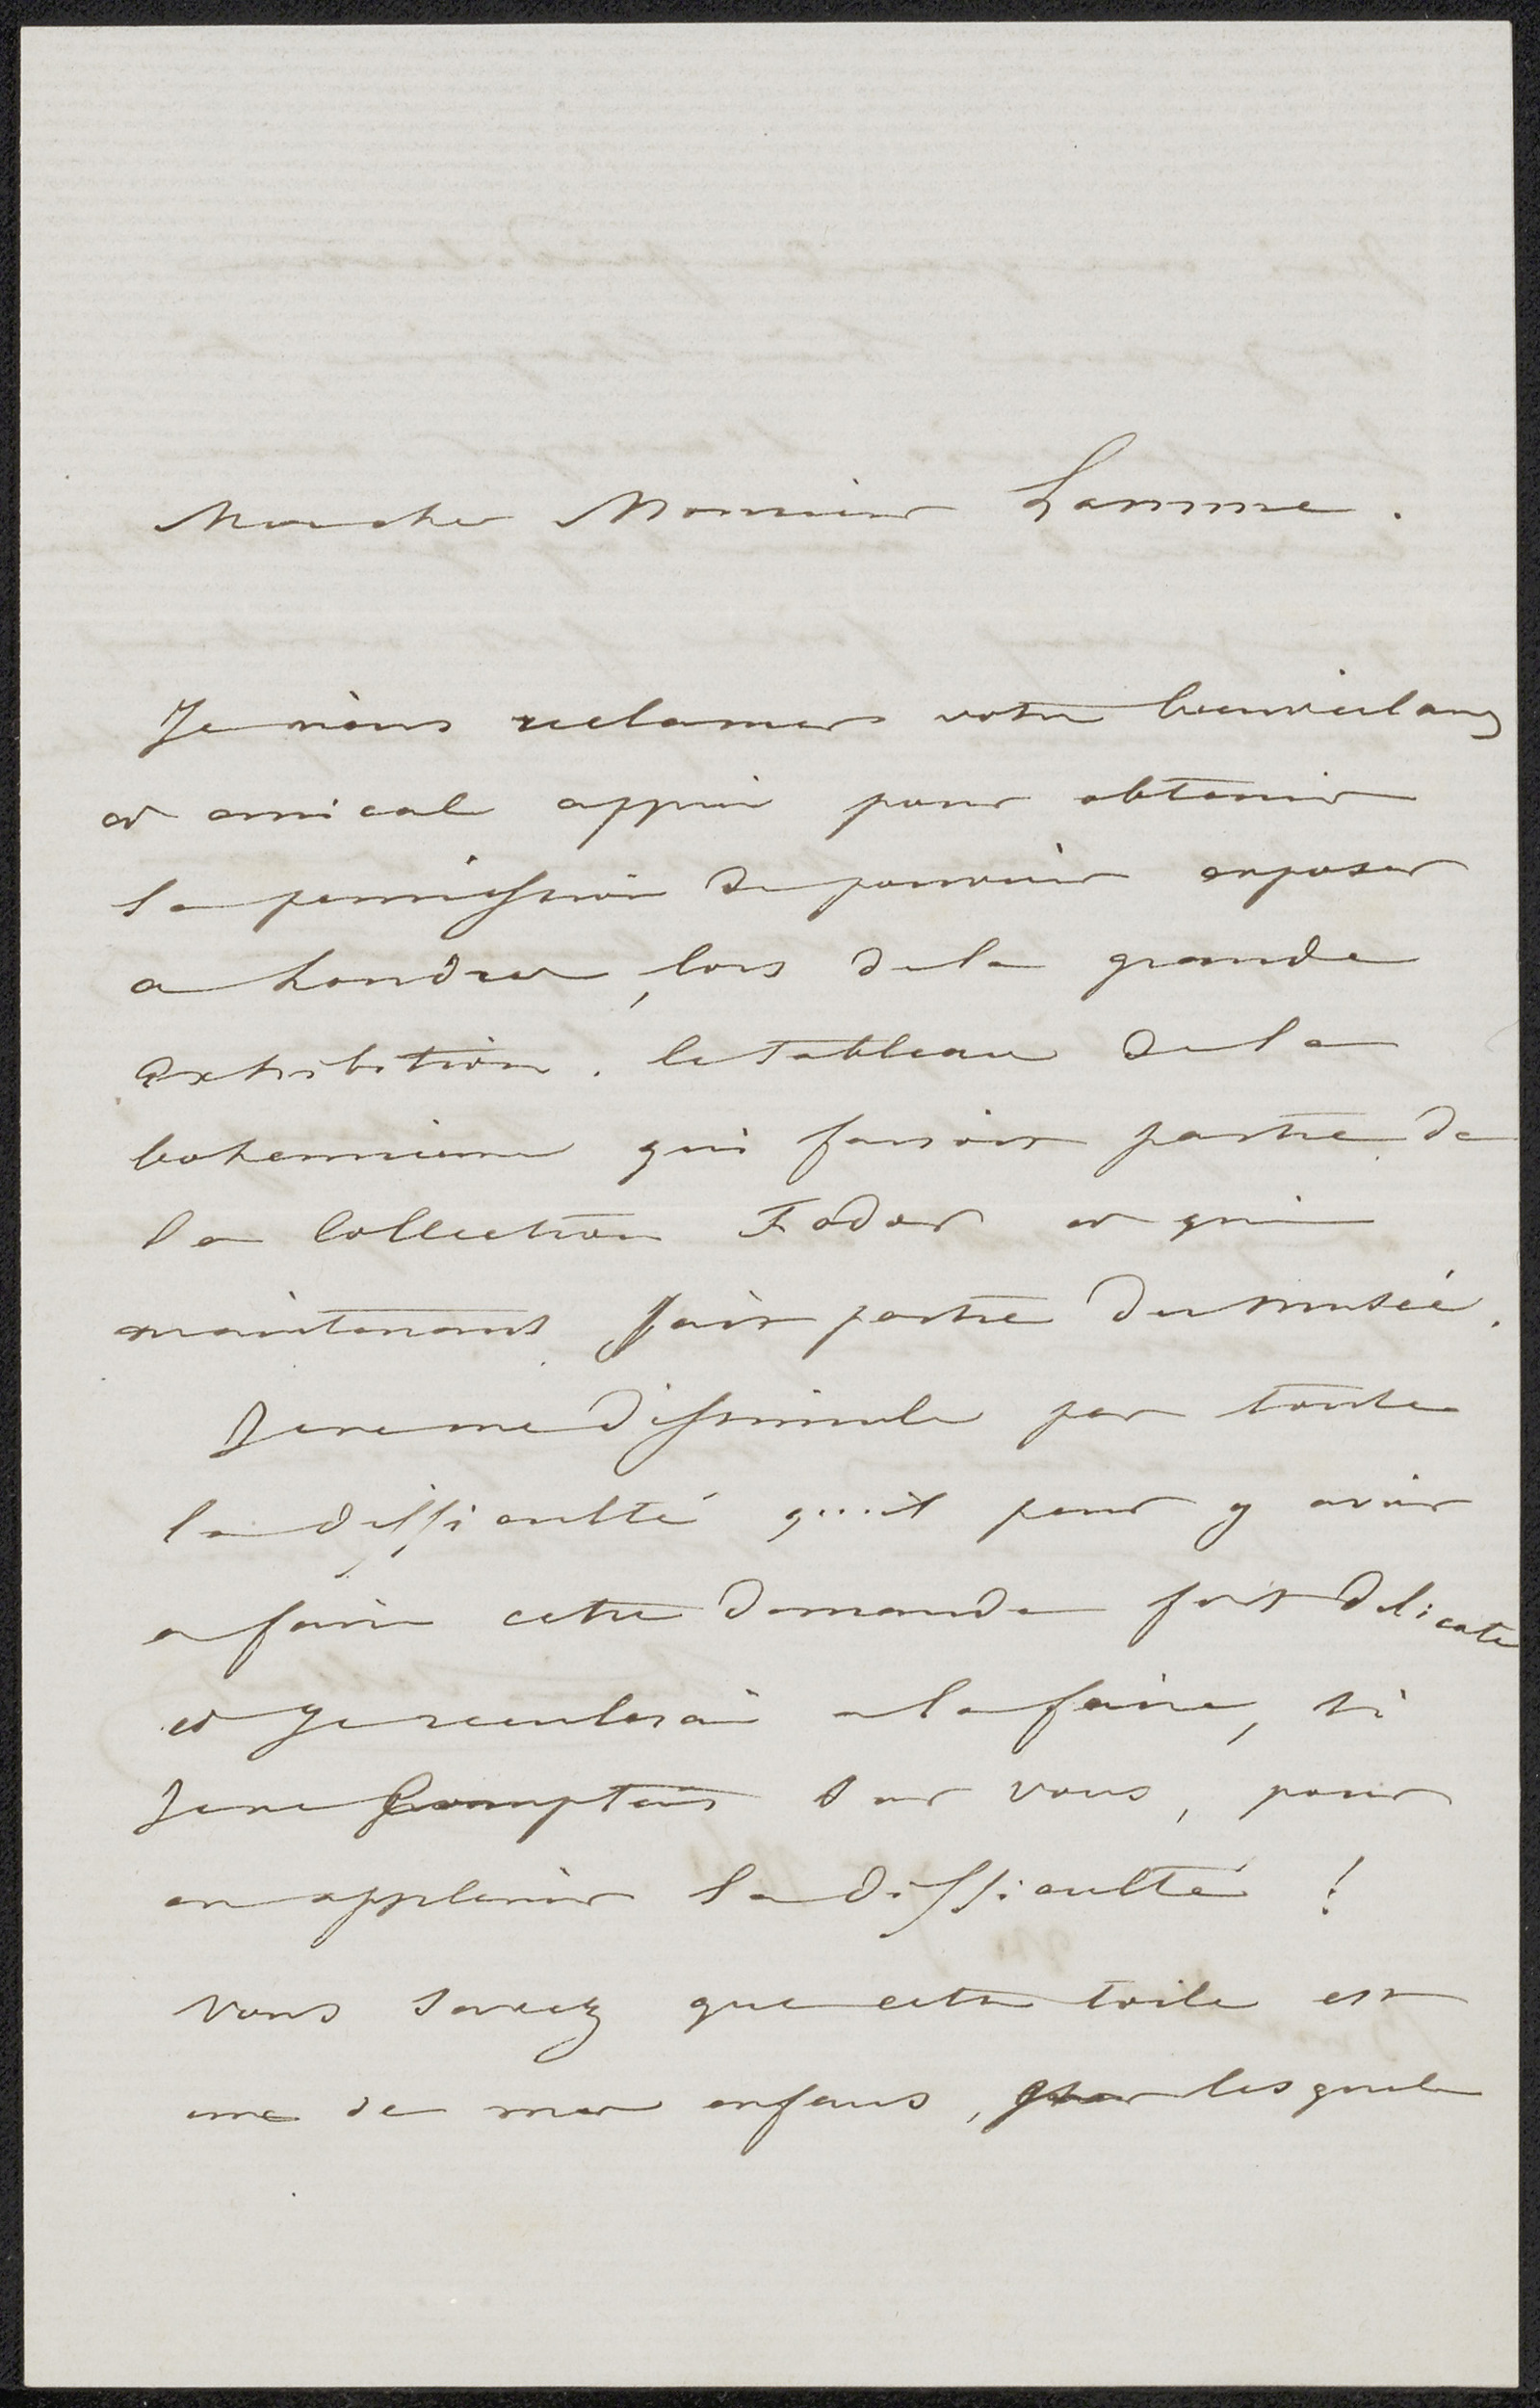 Mon cher Monsieur Lamme.
Je viens reclamer votre bienveilant
et amical appui pour obtenir
la permission de pouvoir exposer
a Londres, lors de la grande
Exhibition. le tableau de la
bohemienne qui faisoit partie de
la Collection Fodor et qui
maintenant fait partie du musée.
Je ne me dissimule pas toute
la difficulté qu'il peut y avoir
a faire cette demande fort delicate
et je reculerai a la faire, si
Je ne comptais sur vous, pour
en applanir la difficulté !
Vous savez que cette toile est
une de mes enfans, lesquels